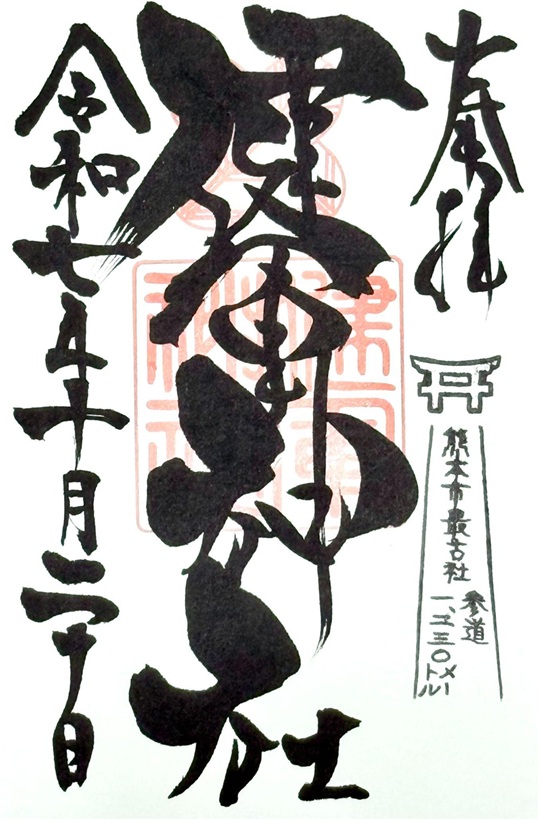 奉拝
熊本市最古社
参道
一、二三〇メートル
健軍神社
令和七年十月二十日